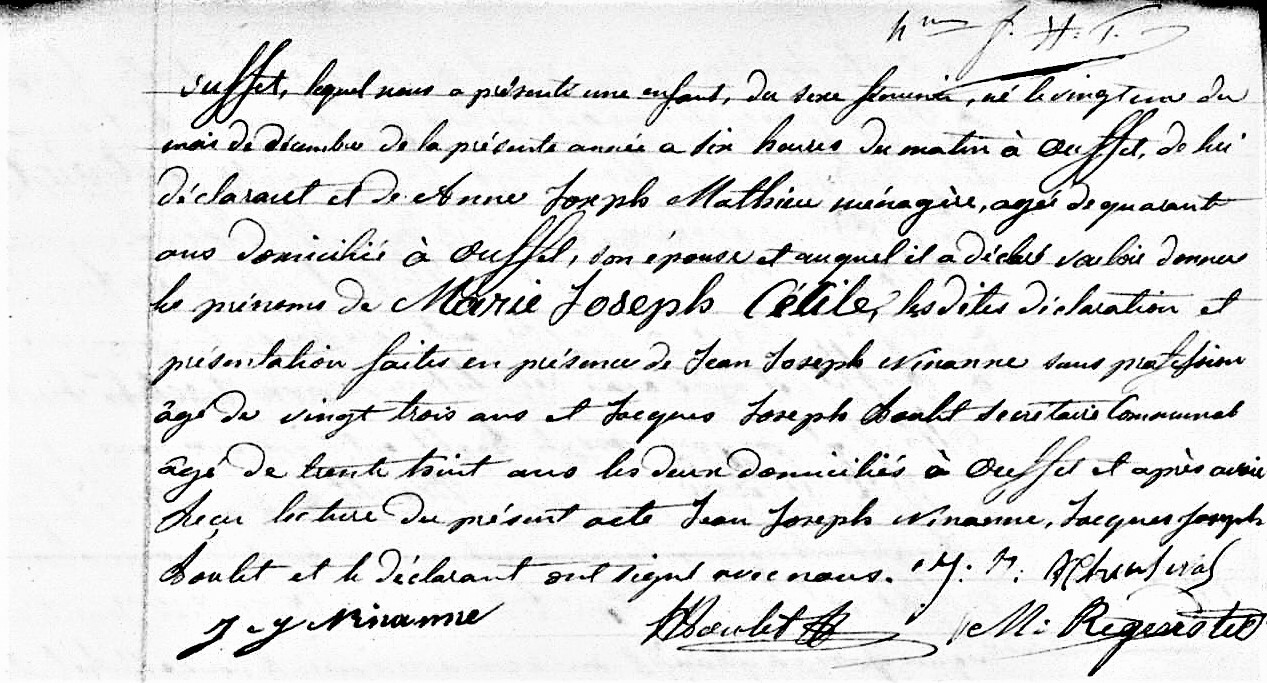 h J. H. T.
ouffet, lequel nous a présenté une enfant, du sexe féminin, né le vingt un du
mois de décembre de la présente année a six heures du matin à Ouffet, de lui
déclarant et de Anne Joseph Mathieu ménagère, agée de quarant
ans domiciliée à Ouffet, son epouse et auquel il a déclaré vouloir donner
les prénoms de Marie Joseph Cécile, les dites déclaration et
présentation faites en présence de Jean Joseph Ninanne sans profession
âgé de vingt trois ans et Jacques Joseph Boulet Secretaire Communal
âgé de trente huit ans les deux domiciliés à Ouffet et après avoir
reçu lecture du présent acte Jean Joseph Ninanne, Jacques Joseph
Boulet et le déclarant ont signé avec nous. J.
J. J Ninanne Boulet M: Regenstet